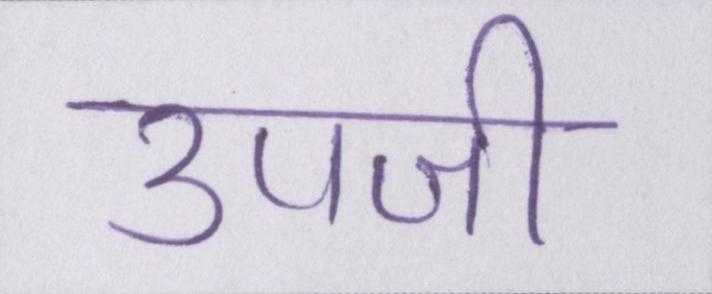 उपजी